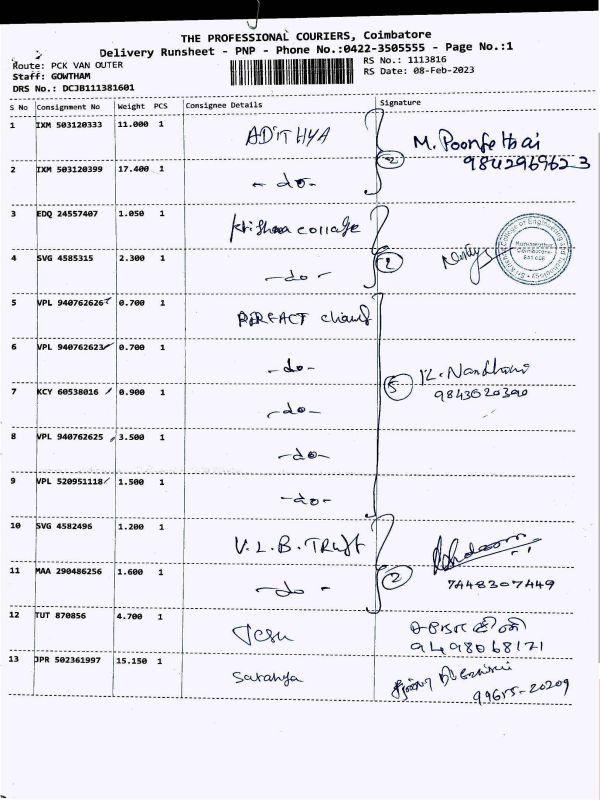 THE PROFESSIONAL COURIERS, Coimbatore
Delivery Runsheet - PNP - Phone No.:0422-3505555 - Page No.:1
Route: PCK VAN OUTER
Staff: GOWTHAM
DRS No.: DCJB111381601
RS No.: 1113816
RS Date: 08-Feb-2023
S No Consignment No Weight PCS Consignee Details Signature
1 IXM 503120333 11.000 1 ADITHYA
2 M. Poonfethai
9842969623
2 IXM 503120399 17.400 1 - do -
3 EDQ 24557407 1.050 1 krishna college
2
4 SVG 4585315 2.300 1 - do -
5 VPL 940762626 0.700 1 PERFACT
6 VPL 940762623 0.700 1 - do -
5 K. Nandhini
7 KCY 60538016 0.900 1 - do -
8 VPL 940762625 3.500 1 - do -
9 VPL 520951118 1.500 1 - do -
10 SVG 4582496 1.200 1 V.L.B. TRUST
2
11 MAA 290486256 1.600 1 - do -
7448307449
12 TUT 870856 4.700 1 Jesu
9498068121
13 JPR 502361997 15.150 1 Saranya
99655-20209